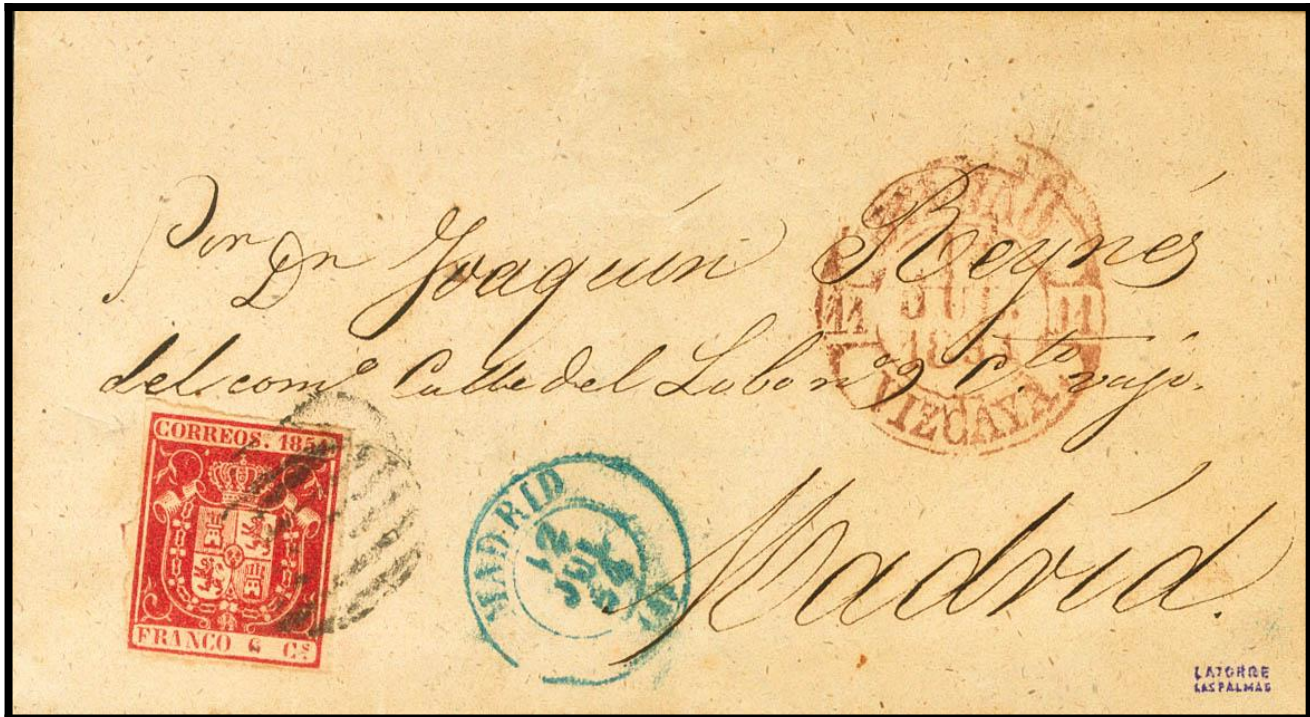 Por
Dn Joaquín Reynés
del comº Calle del Lobo nº 9 C.to vajo.
Madrid.
BILBAO
JUL.
11 11
VIZCAYA.
CORREOS. 1854
FRANCO 6 Cs
MADRID
12
JUL
54
LATORRE
LAS PALMAS